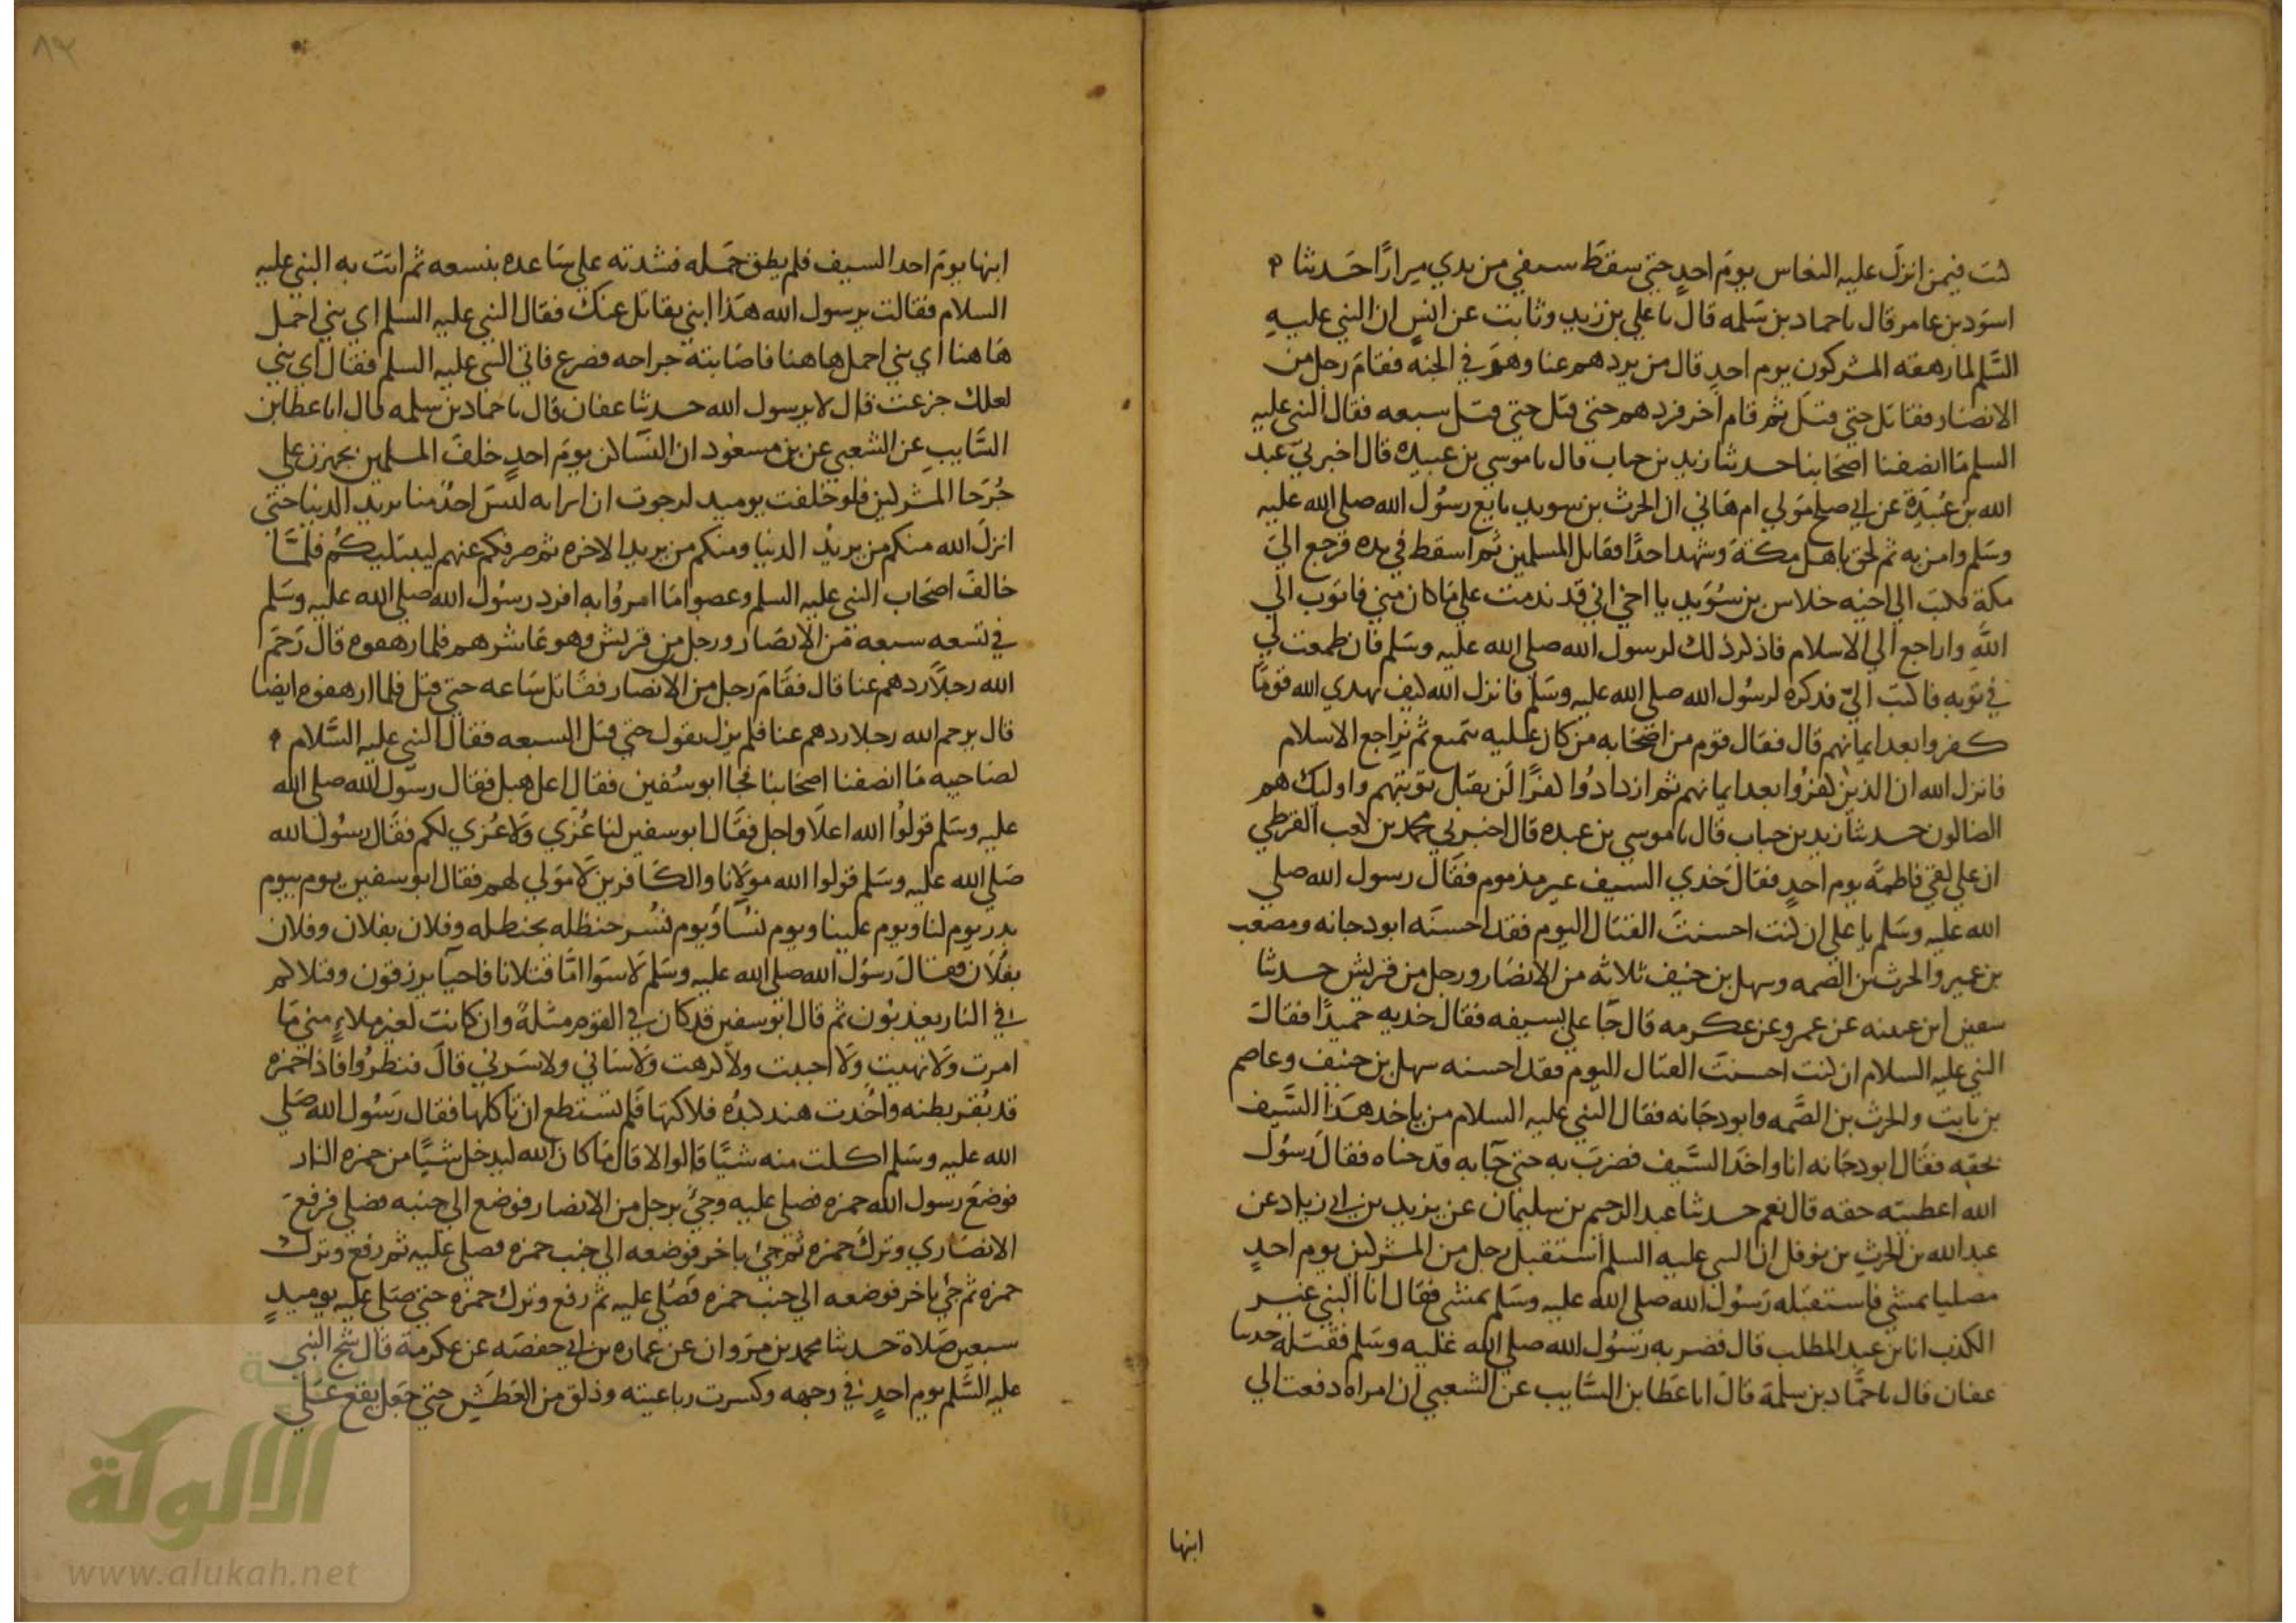 كنت فيمن انزل عليه النعاس يوم احدٍ حتي سقط سيفي من يدي مرارًا حدثنا
اسود بن عامر قال نا حماد بن سلمه قال نا علي بن زيد وثابت عن انسٍ ان النبي عليهِ
السَّلم لما رهقه المشركون يوم احدٍ قال من يردهم عنا وهو في الجنه فقام رجل من
الانصار فقاتل حتي قتل ثم قام اخر فردهم حتي قتل حتي قتل سبعه فقال النبي عليه
السلم ما انصفنا اصحابنا حدثنا زيد بن حباب قال نا موسي بن عبيده قال اخبرني عبد
الله بن عُبَيدة عن ابي صلح مولي ام هاني ان الحرث بن سويد بايع رسُول الله صلي الله عليه
وسَلم وامن به ثم لحق باهل مكة وشهد احدًا فقاتل المسلمين ثم اسقط في يده فرجع الي
مكة فكتب الي اخيه جلاس بن سُوَيد يا اخي اني قد ندمت علي ما كان مني فاتوب الي
الله واراجع الي الاسلام فاذكر ذلك لرسول الله صلي الله عليه وسَلم فان طمعت لي
في توبه فاكتب اليّ فذكره لرسُول الله صلي الله عليه وسَلم فانزل الله كيف يهدي الله قومًا
كفروا بعد ايمانهم قال فقال قوم من اصحابه من كان عليه يتمنع ثم يراجع الاسلام
فانزل الله ان الذين كفرُوا بعد ايمانهم ثم ازدادُوا كفرًا لن يقبل توبتهم واوليك هم
الضالون حدثنا زيد بن حباب قال نا موسي بن عبيده قال اخبرني محمد بن كعب القرظي
ان علي لقي فاطمة يوم احدٍ فقال خذي السيف غير مذموم فقال رسول الله صلي
الله عليه وسَلم يا علي ان كنت احسنت القتال اليوم فقد احسنه ابو دجانه ومصعب
بن عمير والحرث بن الصمه وسهل بن حنيف ثلاثه من الانصار ورجل من قريش حدثنا
سفين ابن عيينه عن عمرو عن عكرمه قال جا علي بسيفه فقال خذيه حميدًا فقالت
النبي عليه السلام ان كنت احسنت القتال اليوم فقد احسنه سهل بن حنيف وعاصم
بن ثابت والحرث بن الصَّمه وابو دجانه فقال النبي عليه السلام من ياخذ هذا السَّيف
بحقه فقال ابو دجانه انا واخذ السَّيف فضرب به حتي جآ به قد حناه فقال رسُول
الله اعطيته حقه قال نعم حدثنا عبد الرحيم بن سليمان عن يزيد بن ابي زياد عن
عبد الله بن الحرث بن نوفل ان النبي عليه السلم استقبل رجل من المشركين يوم احدٍ
مصلتا يمشي فاستقبله رسُول الله صلي الله عليه وسَلم يمشي فقال انا النبي غير
الكذب انا بن عبد المطلب قال فضربه رسُول الله صلي الله عليه وسَلم فقتله حدثنا
عفان قال نا حمَّاد بن سلمة قال انا عَطا بن السَّايب عن الشعبي ان امراه دفعت الي
ابنها
ابنها يوم احد السيف فلم يطق حمله فشدته علي ساعده بنسعه ثم اتت به النبي عليه
السلام فقالت يرسول الله هذا ابني يقاتل عنك فقال النبي عليه السلم اي بني احمل
هاهنا اي بني احمل هاهنا فاصابته جراحه فصرع فاتي النبي عليه السلم فقال اي بني
لعلك جزعت قال لا يرسول الله حدثنا عفان قال نا حماد بن سلمه قال انا عطا بن
السَّايب عن الشعبي عن بن مسعود ان النسا كن يوم احدٍ خلف المسلمين يجهزن علي
جُرحا المشركين فلو حلفت يوميد لرجوت ان ابر انه ليس احدٌ منا يريد الدنيا حتي
انزل الله منكم من يريدُ الدنيا ومنكم من يريد الاخره ثم صرفكم عنهم ليبتليكُم فلمَّا
خالف اصحاب النبي عليه السلم وعصوا ما امرُوا به افرد رسُول الله صلي الله عليه وسَلم
في تسعه سبعه من الانصار ورجل من قريش وهو عاشرهم فلما رهقوه قال رَحمَ
الله رجلاً ردهم عنا قال فقام رجل من الانصار فقاتل ساعه حتي قتل فلما ارهقوه ايضا
قال يرحم الله رجلا ردهم عنا فلم يزل يقول حتي قتل السبعه فقال النبي عليه السَّلام
لصاحبيه ما انصفنا اصحابنا فجا ابو سُفين فقال اعل هبل فقال رسول الله صلي الله
عليه وسَلم قولوُا الله اعلا واجل فقال ابو سفين لنا عُزي ولا عُزي لكم فقال رسُول الله
صَلي الله عليه وسَلم قولوا الله مولانا والكافرين لا مَولي لهم فقال ابو سفين يوم بيوم
بدر يوم لنا ويوم علينا ويوم نسَا ويوم نُسر حنظله بحنظله وفلان بفلان وفلان
بفلان فقال رسُول الله صلي الله عليه وسَلم لا سوا امَّا قتلانا فاحيآ يرزقون وقتلاكم
في النار يعذبُون ثم قال ابو سفين قد كان في القوم مثلةً وان كانت لعن غير ملاءٍ مني ما
امرت ولا نهيت ولا احببت ولا كرهت ولا ساني ولا سَرني قال فنظرُوا فاذا حمزه
قد بُقر بطنه واخذت هند كبدُه فلاكتها فلم تستطع ان تاكلها فقال رَسُول الله صَلي
الله عليه وسَلم اكلت منه شيًا قالوا لا قال ما كان الله ليدخل شيًا من حمزه النار
فوضعَ رسول الله حمزه فصلي عليه وجئ برجل من الانصار فوضع الي جنبه فصلي فرفعَ
الانصاري وترك حمزه ثم جئ باخر فوضعه الي جنب حمزه فصلي عليه ثم رفع وترك
حمزه ثم جئ باخر فوضعه الي جنب حمزه فصُلي عليه ثم رفع وترك حمزه حتي صَلي عليه يوميدٍ
سبعين صَلاة حدثنا محمد بن مروان عن عماره بن ابي حفصَه عن عكرمة قال شج النبي
عليه السَّلم يوم احدٍ في وجهه وكسرت رباعيته وذلق من العَطش حتي جعل يقع عَلي
الألوكة
www.alukah.net